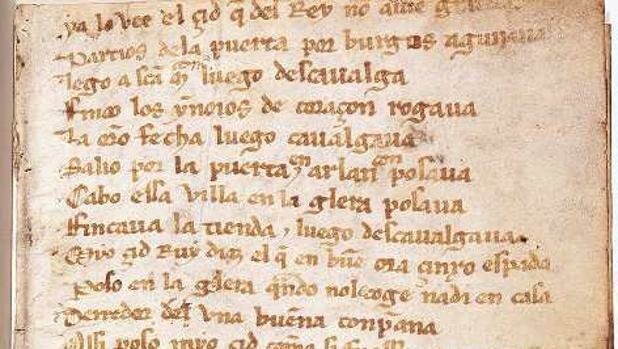 ya lo vee el çid q̃ del Rey no auie gr
Partios dela puerta por burgos aguijaua
lego a sc̃a mͣ luego descaualga
Finco los ynoios de coraçon rogaua
La oro fecha luego caualgaua
Salio por la puerta arlançon posaua
Cabo essa villa en la glera posaua
Fincaua la tienda, luego descaualgaua
myo çid Ruy diaz el q̃ en bũe ora çinxo espada
Poso en la glera qñdo nolecoge nadi en casa
Derredor del vna buena conpaña
Assi poso myo çid como si